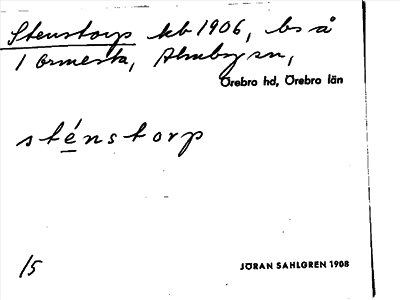 Stenstorp kb 1906, bs å
1 Ormesta, Almby sn,
Örebro hd, Örebro län
sténstorp
15
JÖRAN SAHLGREN 1908